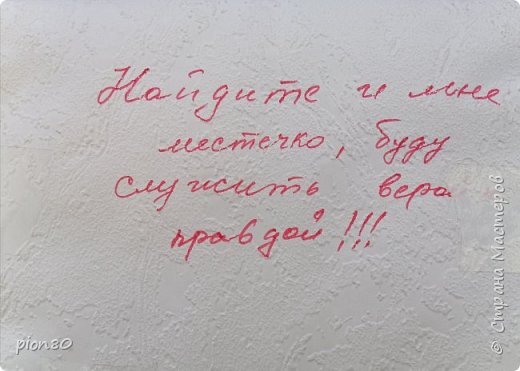 Найдите и мне
местечко, буду
служить вера
правдой!!!
pion30
© Страна Мастеров